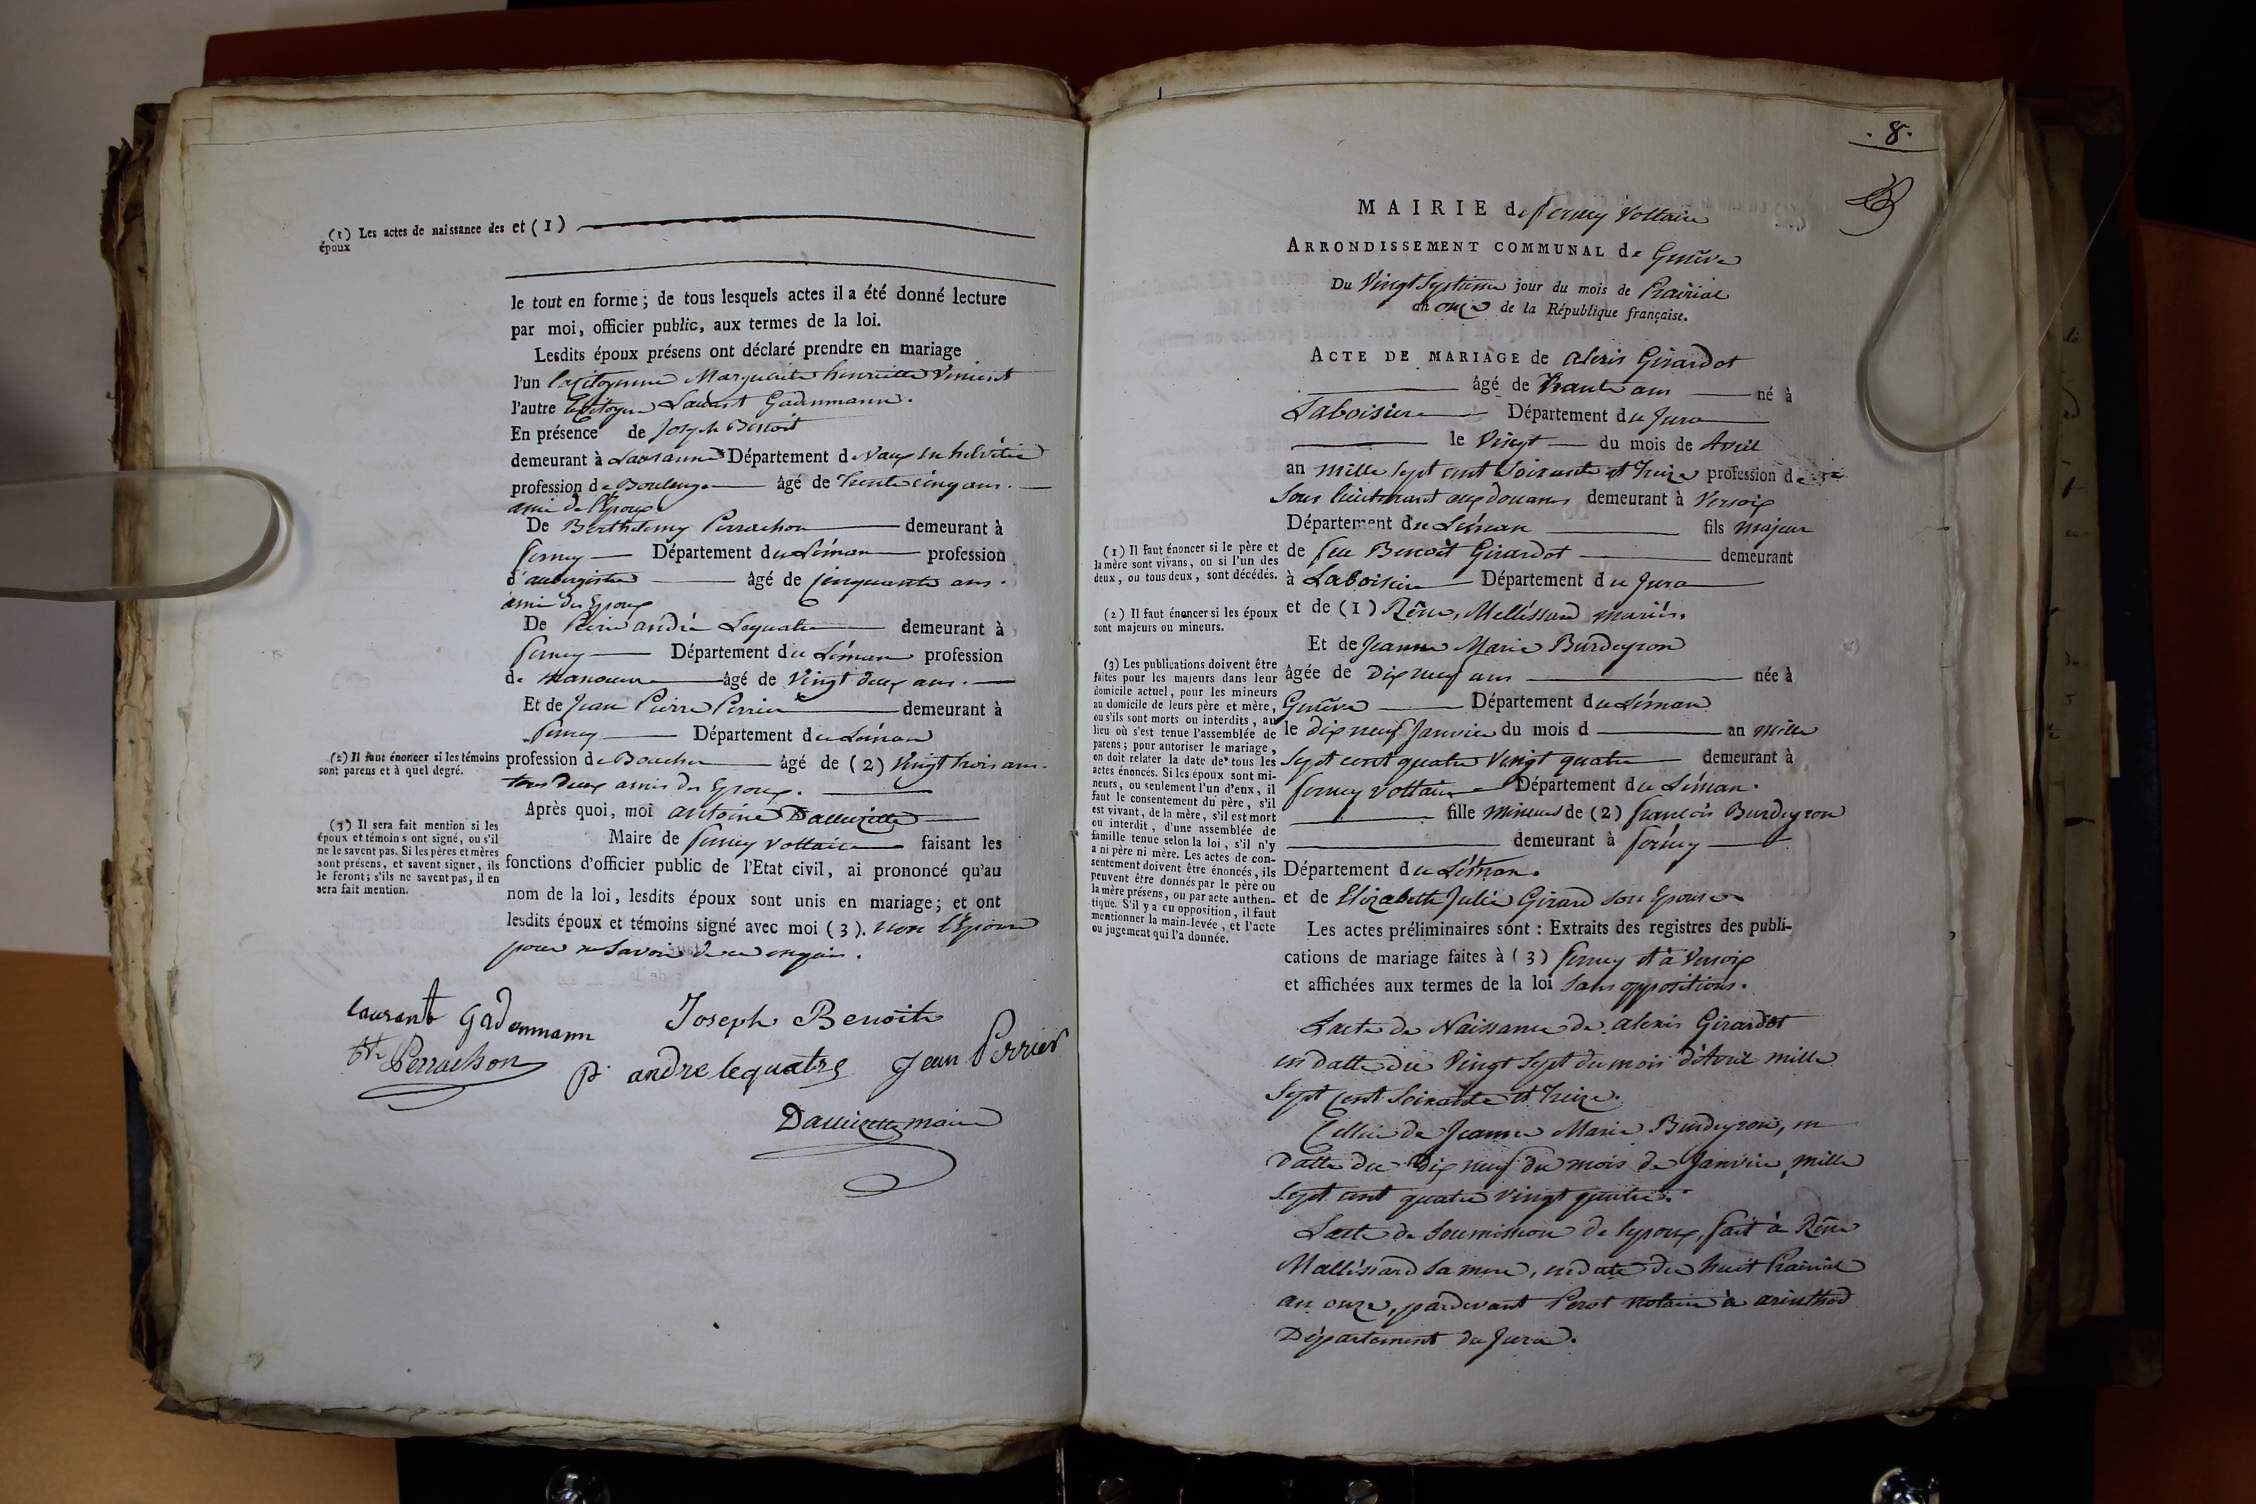 (1) Les actes de naissance des
époux
et (1)
le tout en forme; de tous lesquels actes il a été donné lecture
par moi, officier public, aux termes de la loi.
Lesdits époux présens ont déclaré prendre en mariage
l'un la Citoyenne Marguerite henriette Vincent
l'autre le Citoyen Laurent Gadenmann.
En présence de Joseph Benoit
demeurant à Lausanne Département de Vaux en helvétie
profession de Boulenger âgé de trente cinq ans.
amie de l'Epoux
De Berthelemy Perrachon demeurant à
ferney Département du Léman profession
d'aubergiste âgé de cinquante ans.
amie des Epoux
De Pierre andré Lequatre demeurant à
ferney Département du Léman profession
de manœuvre âgé de Vingt deux ans.
Et de Jean Pierre Perrier demeurant à
ferney Département du Léman
(2) Il faut énoncer si les témoins
sont parens et à quel degré.
profession de Boucher âgé de (2) Vingt trois ans.
tous deux amis des Epoux.
Après quoi, moi antoine
Maire de ferney voltaire faisant les
(3) Il sera fait mention si les
époux et témoins ont signé, ou s'il
ne le savent pas. Si les pères et mères
sont présens, et savent signer, ils
le feront; s'ils ne savent pas, il en
sera fait mention.
fonctions d'officier public de l'Etat civil, ai prononcé qu'au
nom de la loi, lesdits époux sont unis en mariage; et ont
lesdits époux et témoins signé avec moi (3). non l'Epouse
pour ne Savoir de ce enquis.
laurant Gadenmann
Joseph Benoit
Perrachon
p. andre lequatre
Jean Perrier
maire
.8.
MAIRIE de ferney Voltaire
ARRONDISSEMENT COMMUNAL de Genève
Du Vingt Septième jour du mois de Prairial
an onze de la République française.
ACTE DE MARIAGE de alexis Girardot
âgé de trente ans né à
Laboisiere Département du Jura
le Vingt du mois de Avril
an mille Sept cent Soixante et treize profession de
Sous lieutenant aux douanes demeurant à Versoix
Département du Léman fils majeur
(1) Il faut énoncer si le père et
la mère sont vivans, ou si l'un des
deux, ou tous deux, sont décédés.
de feu Benoit Girardot demeurant
à Laboisiere Département du Jura
(2) Il faut énoncer si les époux
sont majeurs ou mineurs.
et de (1) Rêne, Melléssard mariés.
Et de Jeanne Marie Burdeyron
(3) Les publications doivent être
faites pour les majeurs dans leur
domicile actuel, pour les mineurs
au domicile de leurs père et mère,
ou s'ils sont morts ou interdits, au
lieu où s'est tenue l'assemblée de
parens; pour autoriser le mariage,
on doit relater la date de tous les
actes énoncés. Si les époux sont mi-
neurs, ou seulement l'un d'eux, il
faut le consentement du père, s'il
est vivant, de la mère, s'il est mort
ou interdit, d'une assemblée de
famille tenue selon la loi, s'il n'y
a ni père ni mère. Les actes de con-
sentement doivent être énoncés, ils
peuvent être donnés par le père ou
la mère présens, ou par acte authen-
tique. S'il y a eu opposition, il faut
mentionner la main-levée, et l'acte
ou jugement qui l'a donnée.
âgée de Dix neuf ans née à
Genève Département du Léman
le dix neuf Janvier du mois d an mille
Sept cent quatre Vingt quatre demeurant à
ferney voltaire Département du Léman.
fille mineure de (2) françois Burdeyron
demeurant à ferney
Département du Léman.
et de Elizabeth Julie Girard son Epouse
Les actes préliminaires sont : Extraits des registres des publi-
cations de mariage faites à (3) ferney et à Versoix
et affichées aux termes de la loi Sans oppositions.
Lacte de Naissance de alexis Girardot
en datte du Vingt Sept du mois d'Avril mille
Sept Cent Soixante et treize.
Celluie de Jeanne Marie Burdeyron, en
datte du Dix neuf du mois de Janvier mille
Sept cent quatre vingt quatre.
Lacte de Soumission de lepoux, fait à Rêne
Malléssard Sa mere, en date du huit Prairial
an onze, pardevant Perot notaire à arinthod
Département du Jura.